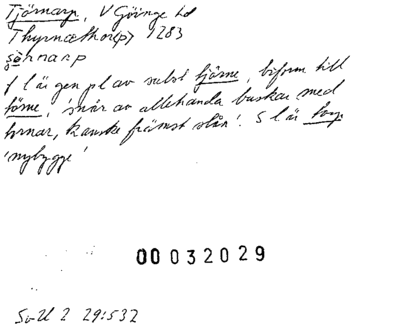 Tjörnarp, V Göinge hd
Thyrnæthorp 1283
söhnarp
f l är gen pl av subst tjörne, biform till
törne, 'snår av allehanda buskar med
törnar, kanske främst slån'. S l är torp
'nybygge'
00032029
SvU 2 29:532